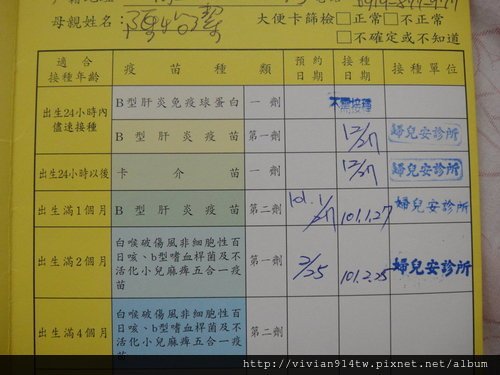 母親姓名：
大便卡篩檢□正常 □不正常
□不確定或不知道
適合
接種年齡
疫苗種類
預約
日期
接種
日期
接種單位
出生24小時內
儘速接種
B型肝炎免疫球蛋白 一劑 不需接種
B型肝炎疫苗 第一劑 12/27 婦兒安診所
出生24小時以後 卡介苗 一劑 12/27 婦兒安診所
出生滿1個月 B型肝炎疫苗 第二劑 101.1/27 101.1.27 婦兒安診所
出生滿2個月
白喉破傷風非細胞性百
日咳、b型嗜血桿菌及不
活化小兒麻痺五合一疫
苗
第一劑 2/25 101.2.25 婦兒安診所
出生滿4個月
白喉破傷風非細胞性百
日咳、b型嗜血桿菌及不
活化小兒麻痺五合一疫
苗
第二劑
http://vivian914tw.pixnet.net/album